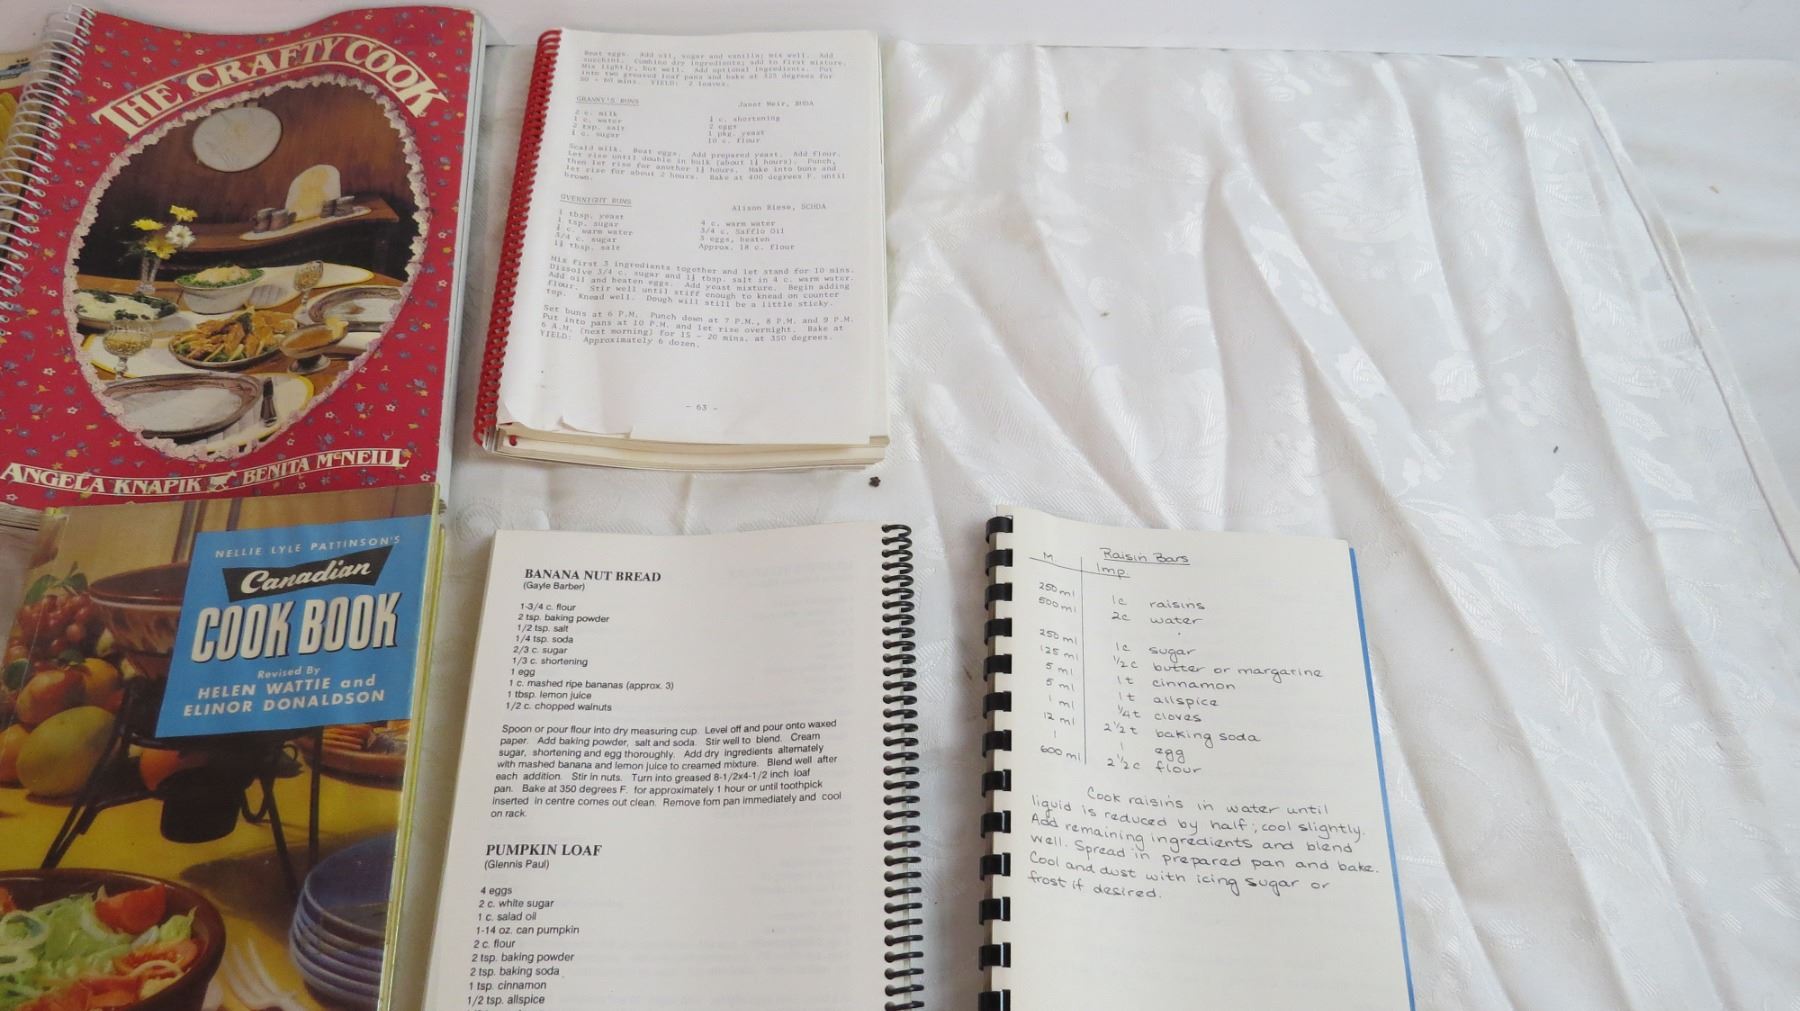 THE CRAFTY COOK
ANGELA KNAPIK BENITA McNEILL
NELLIE LYLE PATTINSON'S
Canadian
COOK BOOK
Revised By
HELEN WATTIE and
ELINOR DONALDSON
Beat eggs. Add oil, sugar and vanilla; mix well. Add
zucchini. Combine dry ingredients; add to first mixture.
Mix lightly, but well. Add optional ingredients. Put
into two greased loaf pans and bake at 325 degrees for
50 - 60 mins. YIELD: 2 loaves.
GRANNY'S BUNS Janet Weir, BHDA
2 c. milk ¼ c. shortening
1 c. water 2 eggs
2 tsp. salt 1 pkg. yeast
c. sugar 10 c. flour
Scald milk. Beat eggs. Add prepared yeast. Add flour.
Let rise until double in bulk (about 1½ hours). Punch,
then let rise for another 1½ hours. Make into buns and
let rise for about 2 hours. Bake at 400 degrees F. until
brown.
OVERNIGHT BUNS Alison Riese, SCHDA
1 tbsp. yeast 4 c. warm water
1 tsp. sugar 3/4 c. Safflo Oil
c. warm water 3 eggs, beaten
3/4 c. sugar Approx. 18 c. flour
1½ tbsp. salt
Mix first 3 ingredients together and let stand for 10 mins.
Dissolve 3/4 c. sugar and 1½ tbsp. salt in 4 c. warm water.
Add oil and beaten eggs. Add yeast mixture. Begin adding
flour. Stir well until stiff enough to knead on counter
top. Knead well. Dough will still be a little sticky.
Set buns at 6 P.M. Punch down at 7 P.M., 8 P.M. and 9 P.M.
Put into pans at 10 P.M. and let rise overnight. Bake at
6 A.M. (next morning) for 15 - 20 mins. at 350 degrees.
YIELD: Approximately 6 dozen.
- 63 -
BANANA NUT BREAD
(Gayle Barber)
1-3/4 c. flour
2 tsp. baking powder
1/2 tsp. salt
1/4 tsp. soda
2/3 c. sugar
1/3 c. shortening
1 egg
1 c. mashed ripe bananas (approx. 3)
1 tbsp. lemon juice
1/2 c. chopped walnuts
Spoon or pour flour into dry measuring cup. Level off and pour onto waxed
paper. Add baking powder, salt and soda. Stir well to blend. Cream
sugar, shortening and egg thoroughly. Add dry ingredients alternately
with mashed banana and lemon juice to creamed mixture. Blend well after
each addition. Stir in nuts. Turn into greased 8-1/2x4-1/2 inch loaf
pan. Bake at 350 degrees F. for approximately 1 hour or until toothpick
inserted in centre comes out clean. Remove fom pan immediately and cool
on rack.
PUMPKIN LOAF
(Glennis Paul)
4 eggs
2 c. white sugar
1 c. salad oil
1-14 oz. can pumpkin
2 c. flour
2 tsp. baking powder
2 tsp. baking soda
1 tsp. cinnamon
1/2 tsp. allspice
Raisin Bars
M Imp.
250 ml 1c raisins
500 ml 2c water
250 ml 1c sugar
125 ml ½c butter or margarine
5 ml 1t cinnamon
5 ml 1t allspice
1 ml ¼t cloves
12 ml 2½t baking soda
1 1 egg
600 ml 2½c flour
Cook raisins in water until
liquid is reduced by half; cool slightly.
Add remaining ingredients and blend
well. Spread in prepared pan and bake.
Cool and dust with icing sugar or
frost if desired.